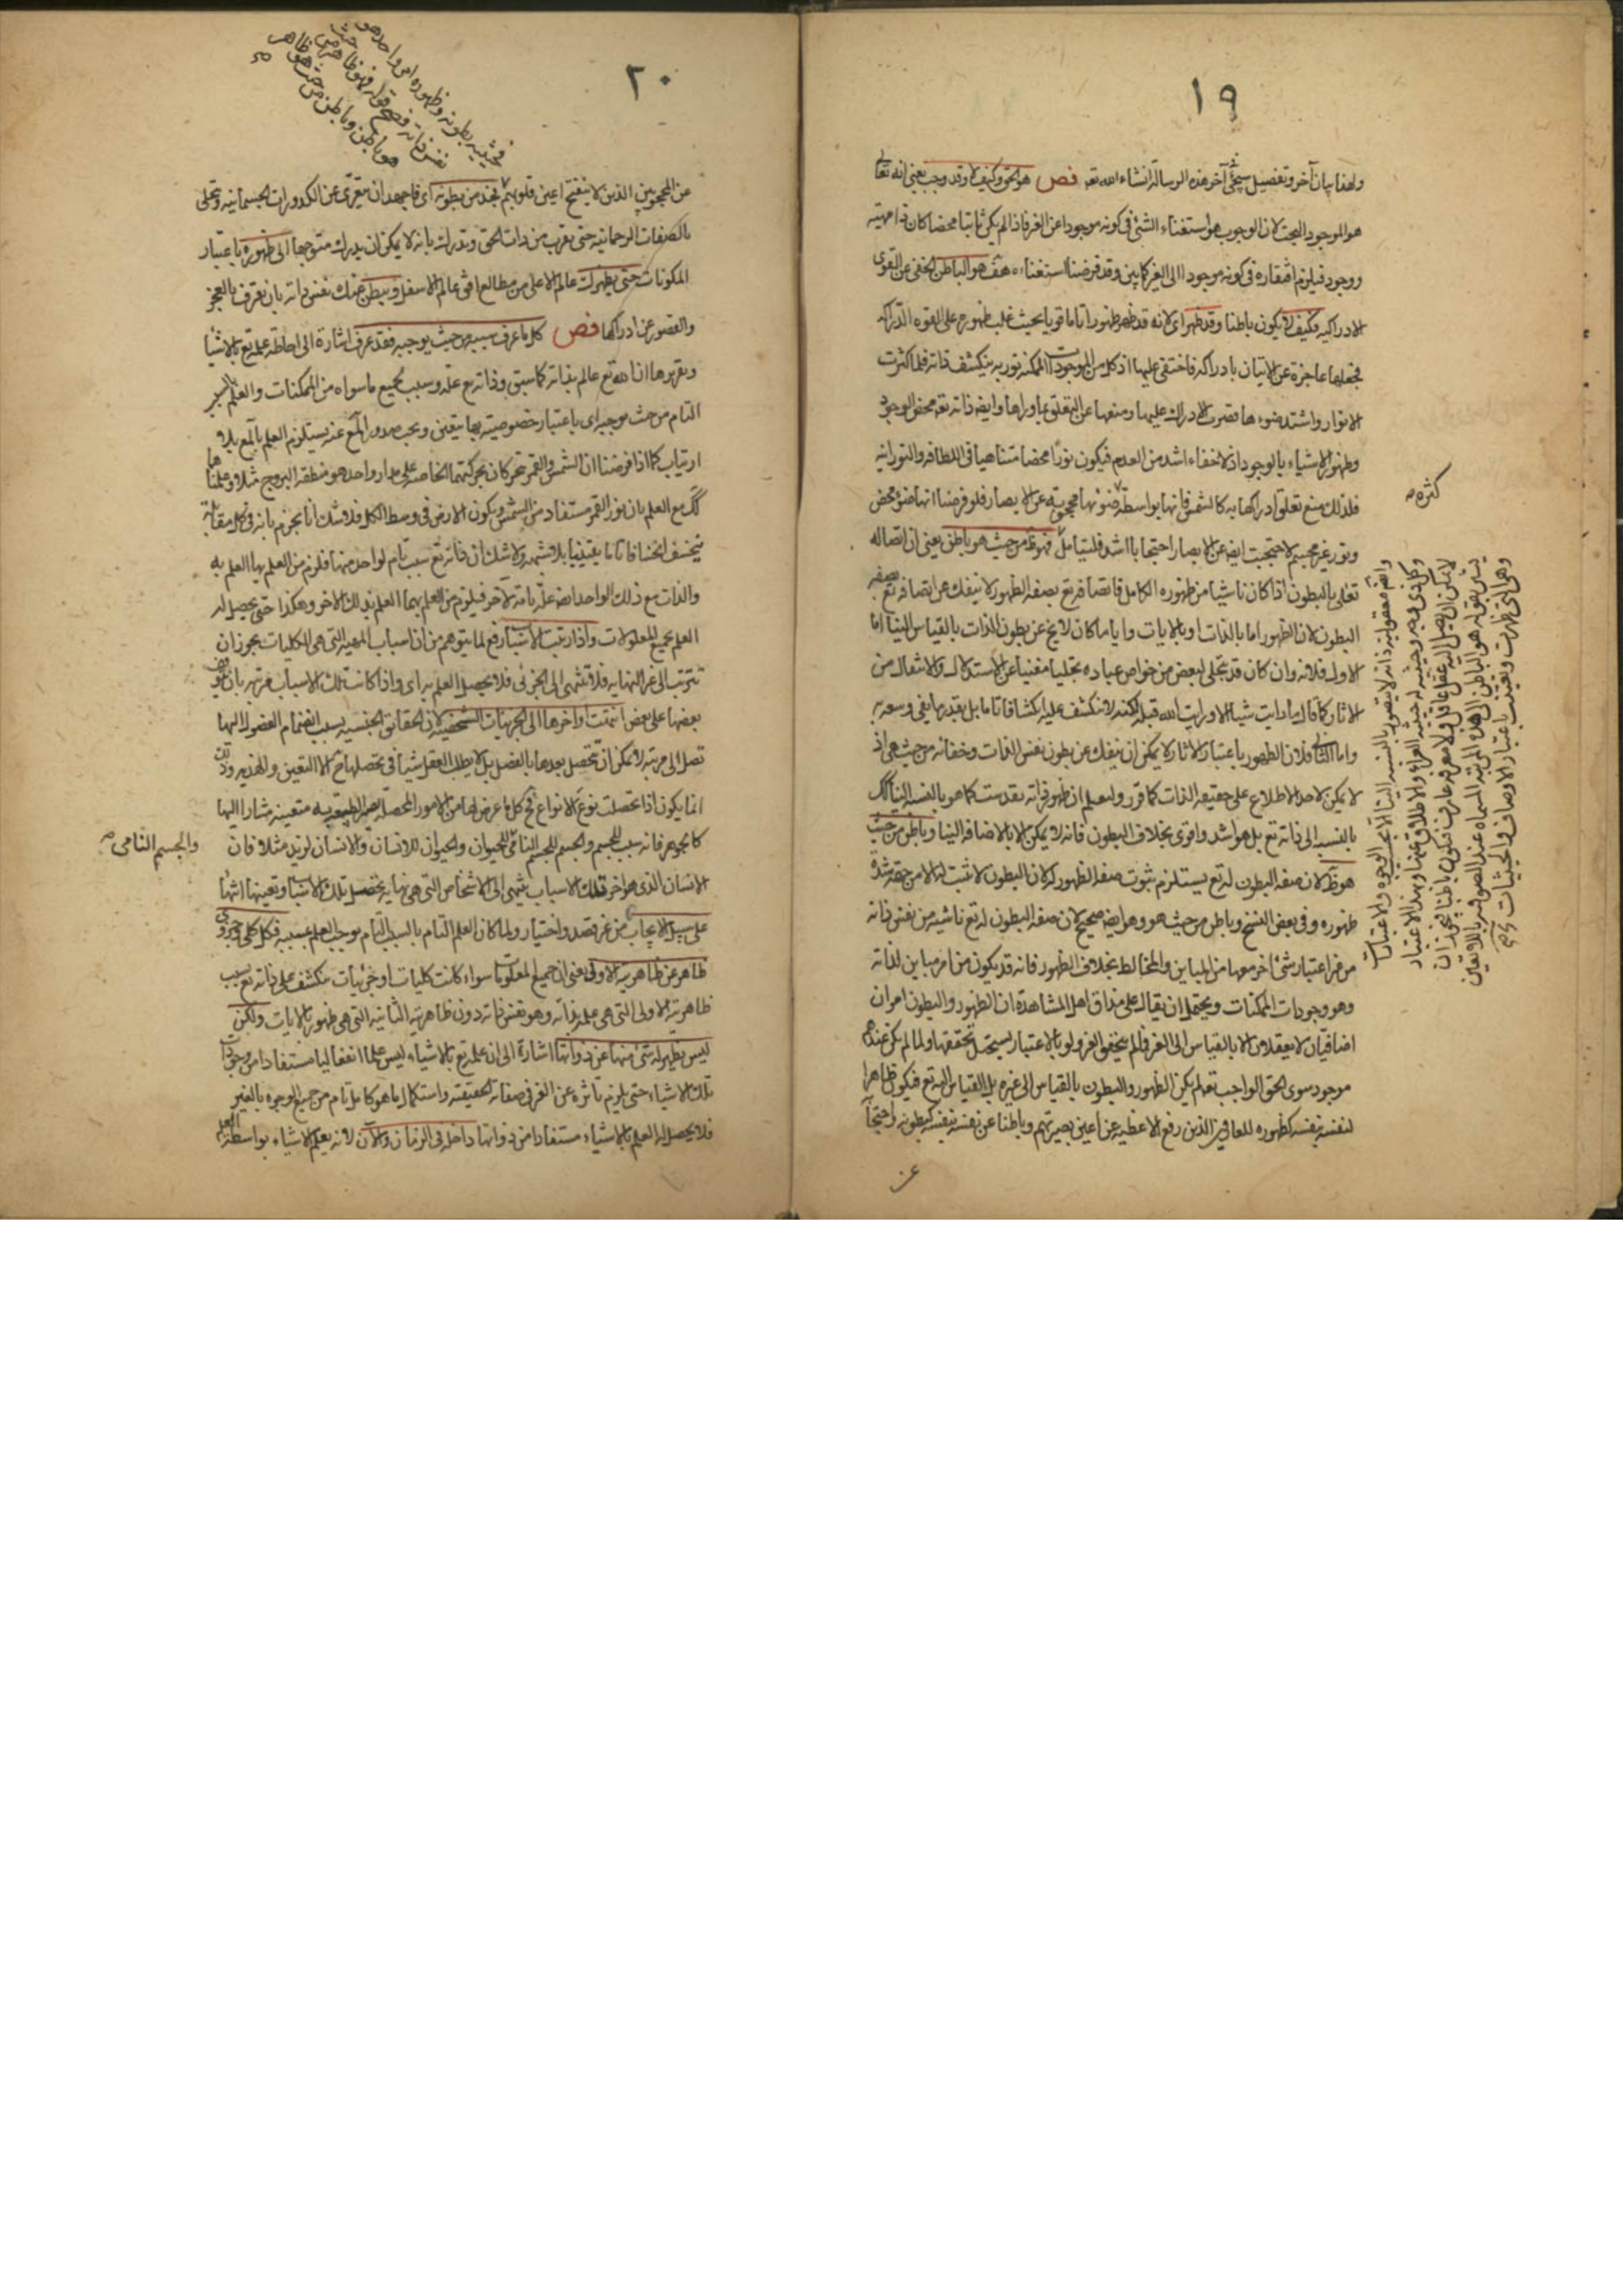 ١٩
ولهذا بيان آخر وتفصيل سيجئ آخر هذه الرسالة انشاء الله تعه فص هو الحق وكيف لا وقد وجب يعنى انه تعالى
هو الموجود البحت لان الوجوب هو استغناء الشئ فى كونه موجودا عن الغير فاذا لم يكن ثابتا محضا كان ذا مهية
ووجود فيلزم افتقاره فى كونه موجودا الى الغير كما بين وقد فرضنا استغناءه هف هو الباطن الخفى عن القوى
الادراكيه فكيف لا يكون باطنا وقد ظهر اى لانه قد ظهر ظهورا تاما قويا بحيث غلب ظهوره على القوه الدراكه
فجعلها عاجزة عن الاتيان بادراكه فاختفى عليها اذ كل من الموجودات الممكنه نور به ينكشف ذاته فلما كثرت
الانوار واشتد ضوءها قصرت الادراك عليها ومنعها عن التعلق بماوراها وايضه ذاته تعه محض الوجود
وظهور الاشياء بالوجود اذ لا خفاء اشد من العدم فيكون نورا محضا متناهيا فى اللطافه والنورانيه
فلذلك منع تعلق ادراكها به كالشمس فانها بواسطة ضوئها محجوبة عن الابصار فلو فرضنا انها ضوء محض
ونور غير مجسم لاحتجبت ايضه عن الابصار احتجابا اشد فليتامل فهو ظ من حيث هو باطن يعنى ان اتصاله
تعالى بالبطون اذا كان ناشيا من ظهوره الكامل فاتصافه تع بصفه الظهور لا ينفك عن اتصافه تع بصفه
البطون لان الظهور اما بالذات او بالايات وايا ما كان لا يخ عن بطون الذات بالقياس الينا اما
الاول فلانه وان كان قد تجلى لبعض من خواص عباده تجليا مغنيا عن الاستدلال والانتقال من
الاثار كما قال ما رايت شيا الا ورايت الله قبله لكنه لا ينكشف عليه انكشافا تاما بل بقدر ما يفى وسعه به
واما الثانى فلان الظهور باعتبار الاثار لا يمكن ان ينفك عن بطون نفس الذات وخفائه من حيث هى اذ
لا يمكن لاحد الاطلاع على حقيقه الذات كما قرر وليعلم ان ظهور ذاته تقدست كما هو بالنسبه الينا كك
بالنسبه الى ذاته تع بل هو اشد واقوى بخلاف البطون فانه لا يمكن الا بالاضافه الينا وباطن من حيث
هو ظ لان صفه البطون له تع يستلزم ثبوت صفه الظهور له لان البطون لا يثبت له الا من جهة شدة
ظهوره وفى بعض النسخ وباطن من حيث هو وهو ايضه صحيح لان صفه البطون له تع ناشيه من نفس ذاته
من غير اعتبار شئ اخر معها من المباين والمخالط بخلاف الظهور فانه قد يكون من امر مباين لذاته
وهو وجودات الممكنات ويحتمل ان يقال على مذاق اهل المشاهدة ان الظهور والبطون امران
اضافيان لا يعقلان الا بالقياس الى الغير فما لم يتحقق الغير ولو بالاعتبار يستحيل تحققها ولما لم يكن عندهم
موجود سوى الحق الواجب تع لم يكن الظهور والبطون بالقياس الى غيره بل بالقياس اليه تع فيكون ظاهرا
لنفسه بنفسه كظهوره للعارفين الذين رفع الاغطيه عن اعين بصيرتهم وباطنا عن نفسه بنفسه كبطونه واحتجابه
عن
كثره صه
واهم معقوليه ذاته لا يتصور بالنسبه الينا الا بحسب الوجوه والاعتبارات
لا يمكن ان يصل اليه عقل عاقل ولا معرفه عارف فيكون باطنا فيجوز ان
وهى التى ظهرت وتعينت باعتبار الاوصاف والحيثيات صه
٢٠
فحيثيه بطونه وظهوره امر واحد هو
نفس ذاته فصح قوله فهو ظاهر من حيث
هو باطن وباطن من حيث هو ظاهر
صه
عن المحجوبين الذين لا ينفتح اعين قلوبهم فخذ من بطونه اى فاجهد ان يتعرى عن الكدورات الجسمانيه وتحلى
بالصفات الرحمانيه حتى تقرب من ذات الحق وتدرك بانه لا يمكن ان يدرك متوجها الى ظهوره باعتبار
المكونات حتى يظهر لك عالم الاعلى من مطالع افق عالم الاسفل ويبطن عنك نفس ذاته بان تعرف بالعجز
والقصور عن ادراكها فص كل ما عرف سببه من حيث يوجبه فقد عرف اشارة الى احاطة علمه تع بالاشيا
وتقريرها ان الله تع عالم بذاته كما سبق وذاته تع علة وسبب لجميع ما سواه من الممكنات والعلم بالسبب
التام من حيث يوجبه اى باعتبار خصوصيته بها يتعين ويجب صدور المع عنه يستلزم العلم بالمع بلا
ارتياب كما اذا فرضنا ان الشمس والقمر تحركان بحركتهما الخاصه على مدار واحد هو منطقه البروج مثلا وعلمنا
كك مع العلم بان نور القمر مستفاد من الشمس ويكون الارض فى وسط الكل فلا شك انا نجزم بانه فى كل مقابلة
ينخسف انخسافا تاما يقينيا بلا شبهه ولا شك ان ذاته تع سبب تام لواحد منها فلزم من العلم بها العلم به
والذات مع ذلك الواحد ايضه علة تامة لآخر فيلزم من العلم بهما العلم بذلك الآخر وهكذا حتى يحصل له
العلم بجميع المعلولات واذا رتبت الاسباب رفع لما يتوهم من ان اسباب المهية التى هى الكليات يجوز ان
تترتب الى غير النهايه فلا تنتهى الى الجزئى فلا يحصل العلم به اى واذا كانت تلك الاسباب مرتبه بان
بعضها على بعض انتهت اواخرها الى الجزئيات الشخصيه لان الحقائق الجنسيه بسبب انضمام الفصول اليها
تصل الى مرتبه لا يمكن ان تتحصل بعدها بالفصل بل لا يطلب العقل شيا فى تحصلها ح الا التعين
انما يكون اذا تحصلت نوع الانواع فح كل ما عرض لها من الامور المحصله متعينه مشارا اليها
كالجوهر فانه سبب للجسم والجسم للجسم النامى للحيوان والحيوان للانسان والانسان لزيد مثلا فان
الانسان الذى هو اخر تلك الاسباب ينتهى الى الاشخاص التى هى نهاية تحصيل تلك الاشيا وتعينها انتهاء
على سبيل الايجاب من غير قصد واختيار ولما كان العلم التام بالسبب التام يوجب العلم بمسببه فكل كلى وجزئى
ظاهر عن ظاهريته الاولى يعنى ان جميع المعلومات سواء كانت كليات او جزئيات منكشف على ذاته تع بسبب
ظاهريته الاولى التى هى علمه بذاته وهو نفس ذاته دون ظاهريته الثانيه التى هى ظهور بالايات ولكن
ليس يظهر له شئ منها عن ذواتها اشارة الى ان علمه تع بالاشياء ليس علما انفعاليا مستفادا من وجودات
تلك الاشياء حتى يلزم تاثره عن الغير فى صفاته الحقيقيه واستكمال ما هو كامل تام من جميع الوجوه بالغير
فلا يحصل له العلم بالاشياء مستفادا من ذواتها داخله فى الزمان والآن لانه يعلم الاشياء بواسطة العلم
والجسم النامى صه